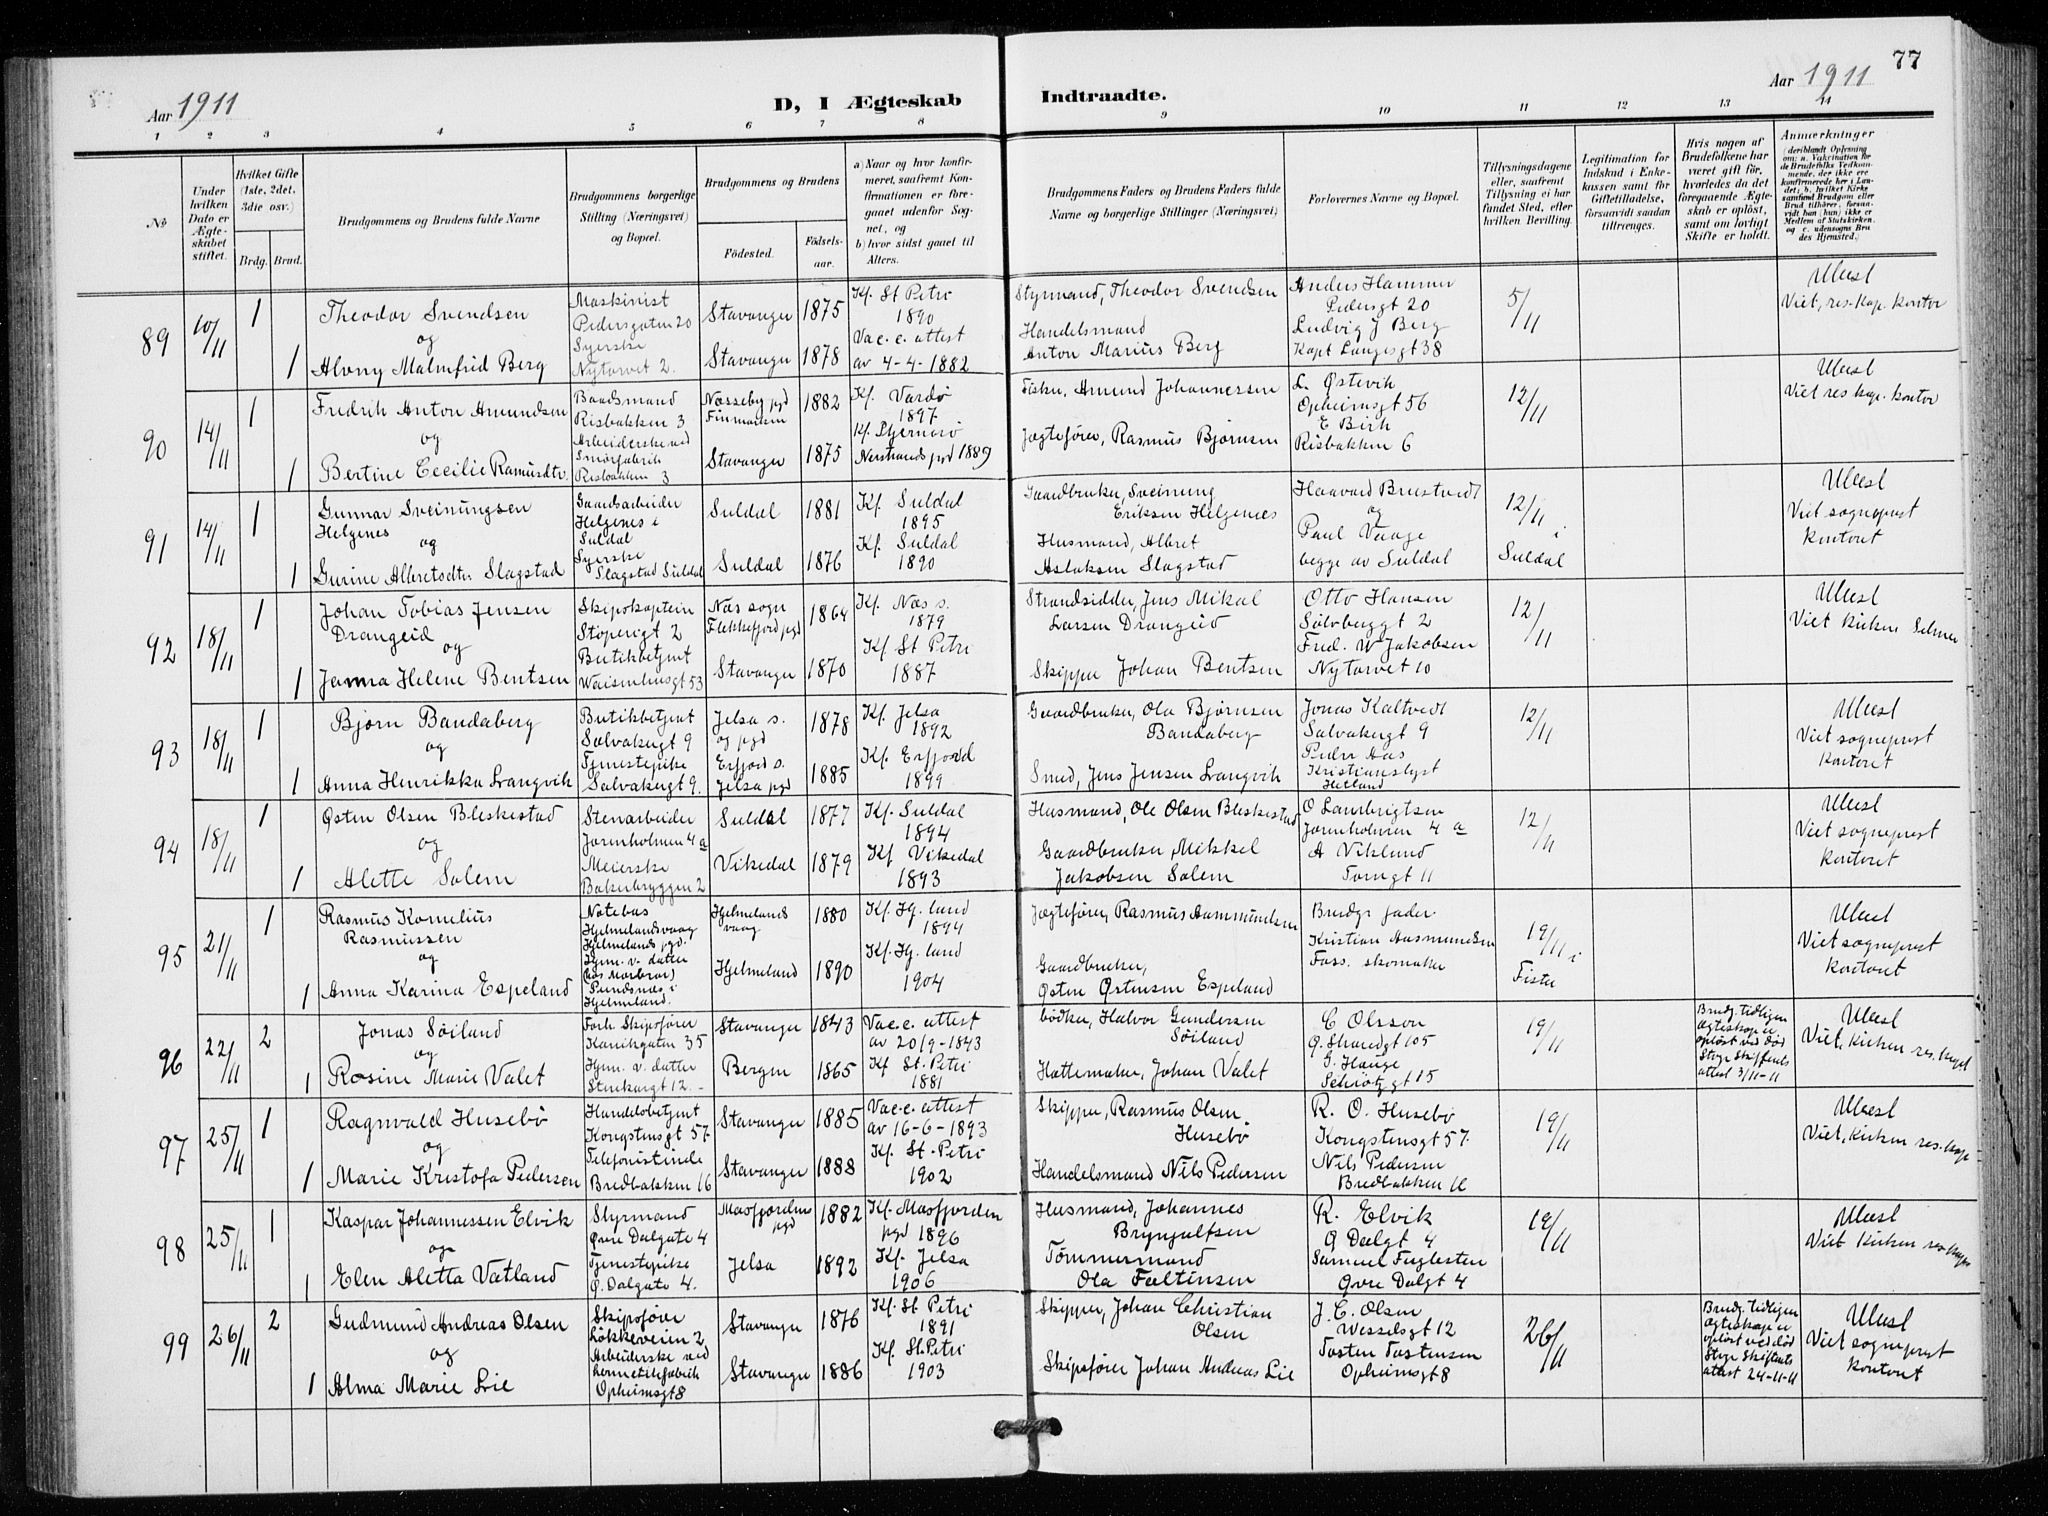 77
Aar 1911
D, I Ægteskab Indtraadte.
Aar 1911
1 2 3 4 5 6 7 8 9 10 11 12 13 14
№
Under hvilken Dato er Ægteskabet stiftet.
Hvilket Gifte (1ste, 2det, 3die osv.)
Brdg. Brud.
Brudgommens og Brudens fulde Navne
Brudgommens borgerlige Stilling (Næringsvei) og Bopæl.
Brudgommens og Brudens
Födested.
Födsels-aar.
a) Naar og hvor konfirmeret, saafremt Konfirmationen er foregaaet udenfor Sognet, og
b) hvor sidst gaaet til Alters.
Brudgommens Faders og Brudens Faders fulde Navne og borgerlige Stillinger (Næringsvei)
Forlovernes Navne og Bopæl.
Tillysningsdagene eller, saafremt Tillysning ei har fundet Sted, efter hvilken Bevilling.
Legitimation for Indskud i Enkekassen samt for Giftetilladelse, forsaavidt saadan tiltrænges.
Hvis nogen af Brudefolkene har været gift før, hvorledes da det foregaaende Ægteskab er opløst, samt om lovligt Skifte er holdt.
Anmerkninger
89
10/11
1
1
Theodor Svendsen
og
Alvny Malmfrid Berg
Maskinist
Pedersgaten 20
Syerske
Nytorvet 2.
Stavanger 1875
Stavanger 1878
Kf. St Petri
1890
Vac.c. attest
av 4-4-1882
Styrmand, Theodor Svendsen
Handelsmand
Anton Marius Berg
Anders Hammer
Pedersgt 20
Ludvig J Berg
Kapt Langesgt 38
5/11
Ubesl
Viet, res. kap. kontor
90
14/11
1
1
Fredrik Anton Amundsen
og
Bertine Cecilie Rasmusdtr.
Baadsmand
Risbakken 3
Arbeiderske ved
Smörfabrik
Risbakken 3
Næsseby pgd
Finmarken 1882
Stavanger 1875
Kf. Vardø
1897.
Kf. Stjernerö
Nerstrands pgd 1889
Fisker, Amund Johannessen
Jægtefører, Rasmus Bjørnsen
L. Østevik
Opheimsgt 56
E Birk
Risbakken 6
12/11
Ubesl
Viet res kap. kontor
91
14/11
1
1
Gunnar Sveinungsen
Helgenes
og
Gurine Albretsdtr. Slagstad
Gaardsarbeider
Helgenes i
Suldal
Syerske
Slagstad Suldal
Suldal 1881
Suldal 1876
Kf. Suldal
1895
Kf. Suldal
1890
Gaardbruker, Sveinung
Eriksen Helgenes
Husmand, Albret
Aslaksen Slagstad
Haavard Bruntvedt
og
Paul Vaage
begge av Suldal
12/11 i
Suldal
Ubesl
Viet sogneprest
kontoret
92
18/11
1
1
Johan Tobias Jensen
Drangeid
og
Janna Helene Bentsen
Skipskaptein
Støperigt 2
Butikbetjent
Waisenhusgt 53
Næs sogn
Flekkefjord pgd 1864
Stavanger 1870
Kf. Næs s.
1879
Kf. St Petri
1887
Strandsidder, Jens Mikal
Larsen Drangeid
Skipper Johan Bentsen
Otto Hansen
Sölvberggt 2
Fred. W Jakobsen
Nytorvet 10
12/11
Ubesl
Viet kirken Selmer
93
18/11
1
1
Bjørn Bandaberg
og
Anna Henrikka Langvik
Butikbetjent
Salvakergt 9
Tjenestepike
Salvakergt 9.
Jelsa s.
og pgd 1878
Erfjord s.
Jelsa pgd 1885
Kf. Jelsa
1892
Kf. Erfjord
1899
Gaardbruker, Ola Bjørnsen
Bandaberg
Smed, Jens Jensen Langvik
Jonas Kaltvedt
Salvakergt 9
Peder Aas
Kristianslyst
Hetland
12/11
Ubesl
Viet sogneprest
kontoret
94
18/11
1
1
Østen Olsen Bleskestad
og
Alette Salem
Stenarbeider
Jorenholmen 4 a
Meierske
Bakerbryggen 2
Suldal 1877
Vikedal 1879
Kf. Suldal
1894
Kf Vikedal
1893
Husmand, Ole Olsen Bleskestad
Gaardbruker, Mikkel
Jakobsen Salem
O Lambrigtsen
Jorenholmen 4 a
A Viklund
Torvgt 11
12/11
Ubesl
Viet sogneprest
kontoret
95
21/11
1
1
Rasmus Kornelius
Rasmussen
og
Anna Karina Espeland
Notebas
Hjelmelandsvaag
Hjelmelands pgd.
Hjm. v. datter
(hos Morbror)
Pundsnæs i
Hjelmeland.
Hjelmelands
vaag 1880
Hjelmeland 1890
Kf. Hj. land
1894
Kf. Hj. land
1904
Jægtefører, Rasmus Aasmundsen
Gaardbruker,
Østen Østensen Espeland
Brudgs fader
Kristian Aasmundsen
Foss. skomaker
19/11 i
Fister
Ubesl
Viet sogneprest
kontoret
96
22/11
2
1
Jonas Söiland
og
Rosine Marie Valet
Forh Skipsfører
Kanikgaten 35
Hjm. v. datter
Stenkargt 12.
Stavanger 1843
Bergen 1865
Vac.c. attest
av 20/9-1843
Kf St. Petri
1881
bödker, Halvor Gundersen
Söiland
Hattemaker, Johan Valet
C Olsson
G. Hauge
19/11
Brudg. tidligere
ægteskap er
opløst ved død
Stvgr Skifterets
attest 3/11-11
Ubesl
Viet, Kirken res. kapel
97
25/11
1
1
Ragnvald Husebö
og
Marie Kristofa Pedersen
Handelsbetjent
Kongstensgt 57
Telefonistinde
Bredbakken 16
Stavanger 1885
Stavanger 1888
Vac.c. attest
av 16-6-1893
Kf. St. Petri
1902
Skipper, Rasmus Olsen
Husebö
Handelsmand Nils Pedersen
R. O. Husebö
Kongstensgt 57.
Nils Pedersen
Bredbakken 16
19/11
Ubesl
Viet, Kirken res. kap
98
25/11
1
1
Kaspar Johannessen Elvik
og
Elen Aletta Vatland
Styrmand
Øvre Dalgate 4
Tjenestepike
Ø. Dalgate 4.
Masfjorden
pgd 1882
Jelsa 1892
Kf. Masfjorden
pgd 1896
Kf. Jelsa
1906
Husmand, Johannes
Brynjulfsen
Tømmermand
Ola Faltinsen
R. Elvik
Ø Dalgt 4
Samuel Fuglesten
Øvre Dalgt 4
19/11
Ubesl
Viet Kirken res. kap
99
26/11
2
1
Gudmund Andreas Olsen
og
Alma Marie Lie
Skipsfører
Løkkeveien 2
Arbeiderske ved
Hermetikfabrik
Opheimsgt 8
Stavanger 1876
Stavanger 1886
Kf. St Petri
1891
Kf. St. Petri
1903
Skipper, Johan Christian
Olsen
Skipsfører Johan Andreas Lie
J. C. Olsen
Wesselsgt 12
Tosten Tostensen
Opheimsgt 8
26/11
Brudg. tidligere
ægteskap er
opløst ved død
Stvgr Skifterets
attest 24-11-11
Ubesl
Viet sogneprest
kontoret